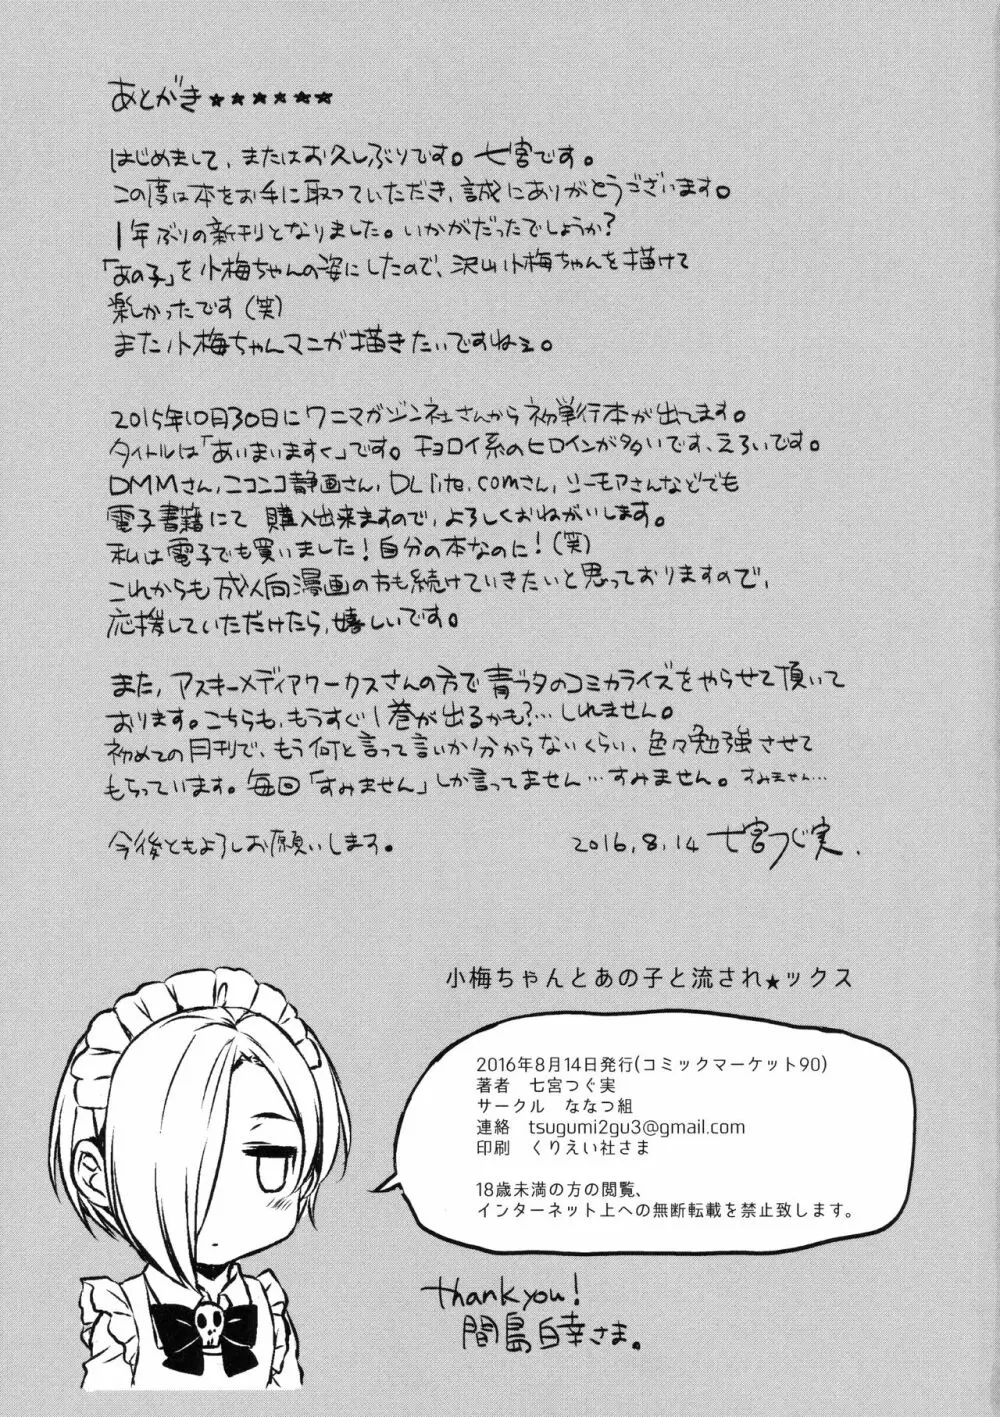 あとがき★★★★★★
はじめまして、またはお久しぶりです。七宮です。
この度は本をお手に取っていただき、誠にありがとうございます。
1年ぶりの新刊となりました。いかがだったでしょうか？
「あの子」を小梅ちゃんの姿にしたので、沢山小梅ちゃんを描けて
楽しかったです(笑)
また小梅ちゃんマンガ描きたいですねェ。
2015年10月30日にワニマガジン社さんから初単行本が出てます。
タイトルは「あいまいますく」です。チョロイ系のヒロインが多いです、えろいです。
DMMさん,ニコニコ静画さん,DLlite.comさん,シーモアさんなどでも
電子書籍にて 購入出来ますので、よろしくおねがいします。
私は電子でも買いました！自分の本なのに！(笑)
これからも成人向漫画の方も続けていきたいと思っておりますので、
応援していただけたら、嬉しいです。
また,アスキーメディアワークスさんの方で青ブタのコミカライズをやらせて頂いて
おります。こちらも,もうすぐ1巻が出るかも?…しれません。
初めての月刊で、もう何と言って言いか分からないくらい、色々勉強させて
もらっています。毎回「すみません」しか言ってません…すみません。すみません…
今後ともよろしお願いします。
2016,8,14 七宮つぐ実.
小梅ちゃんとあの子と流され★ックス
2016年8月14日発行(コミックマーケット90)
著者 七宮つぐ実
サークル ななつ組
連絡 tsugumi2gu3@gmail.com
印刷 くりえい社さま
18歳未満の方の閲覧、
インターネット上への無断転載を禁止致します。
thankyou!
間島百幸さま。